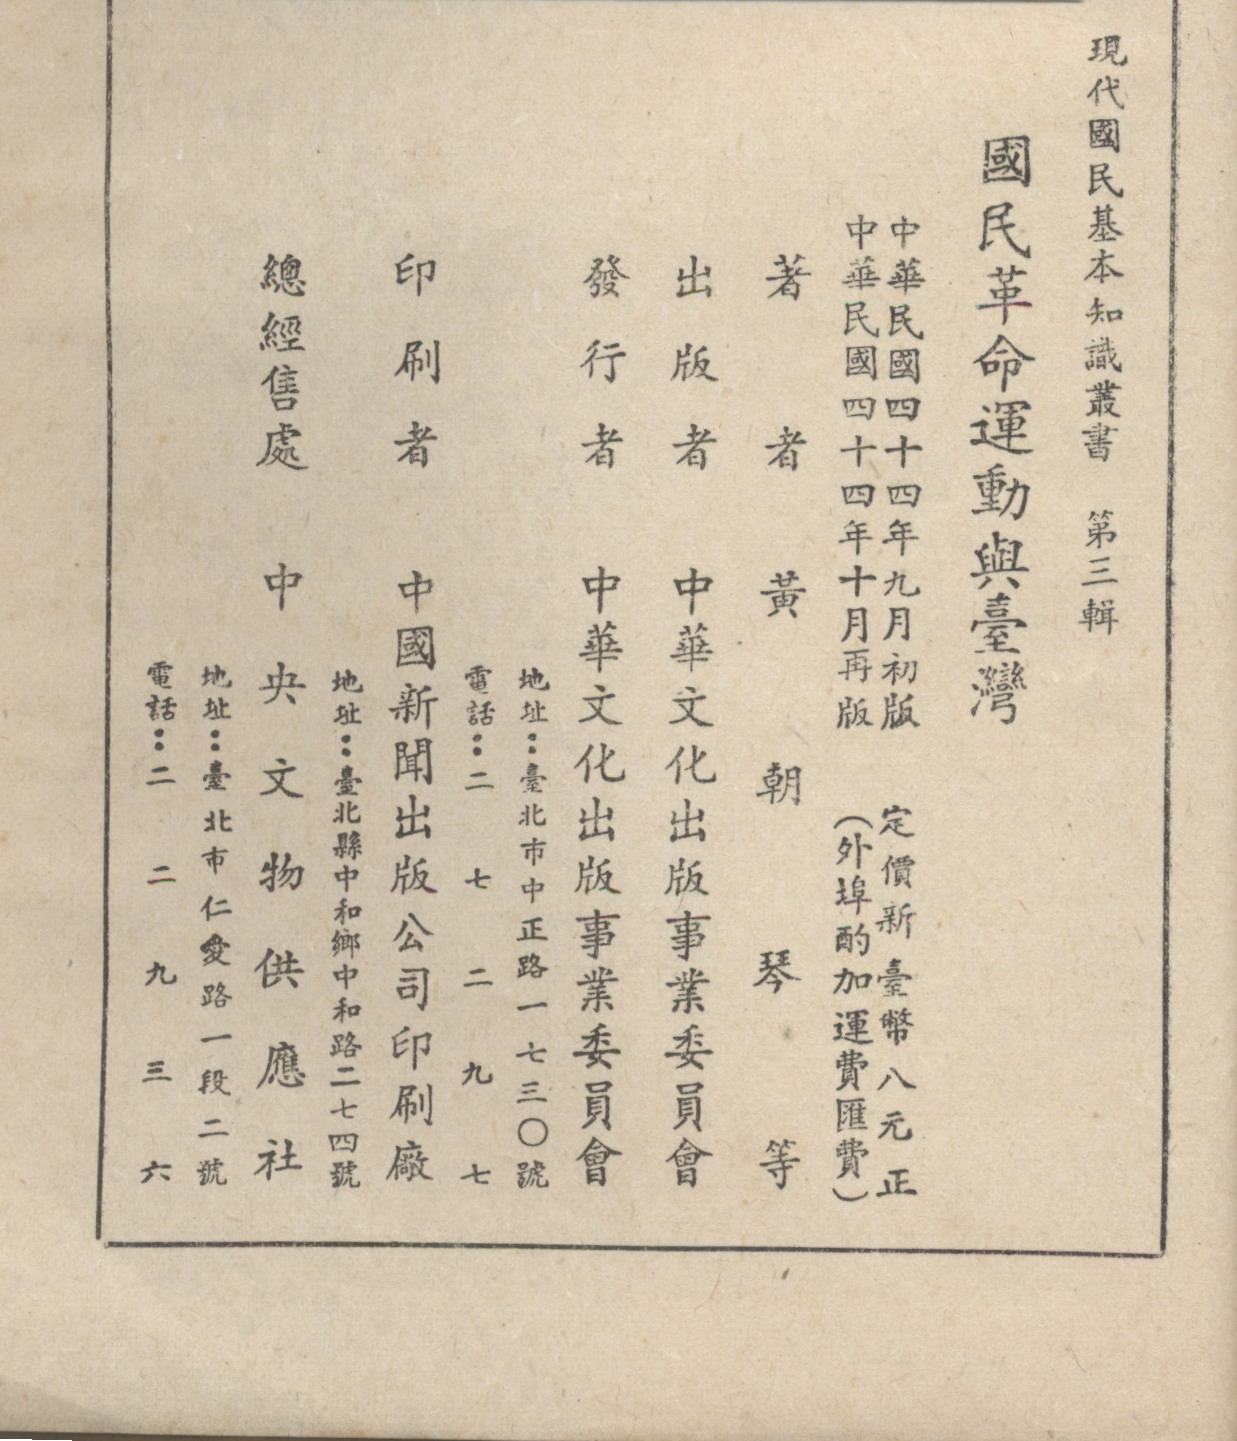 現代國民基本知識叢書　第三輯
國民革命運動與臺灣
中華民國四十四年九月初版
中華民國四十四年十月再版
定價新臺幣八元正
（外埠酌加運費匯費）
著者　黃朝琴等
出版者　中華文化出版事業委員會
發行者　中華文化出版事業委員會
地址：臺北市中正路一七三〇號
電話：二七二九七
印刷者　中國新聞出版公司印刷廠
地址：臺北縣中和鄉中和路二七四號
總經售處　中央文物供應社
地址：臺北市仁愛路一段二號
電話：二二九三六